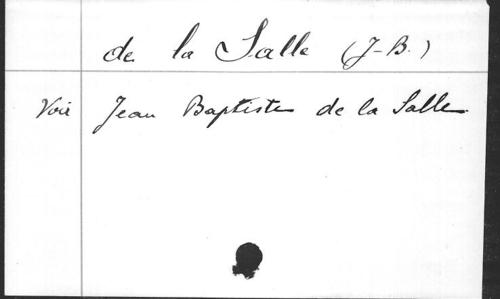 de la Salle (J-B.)
Voir Jean Baptiste de la Salle